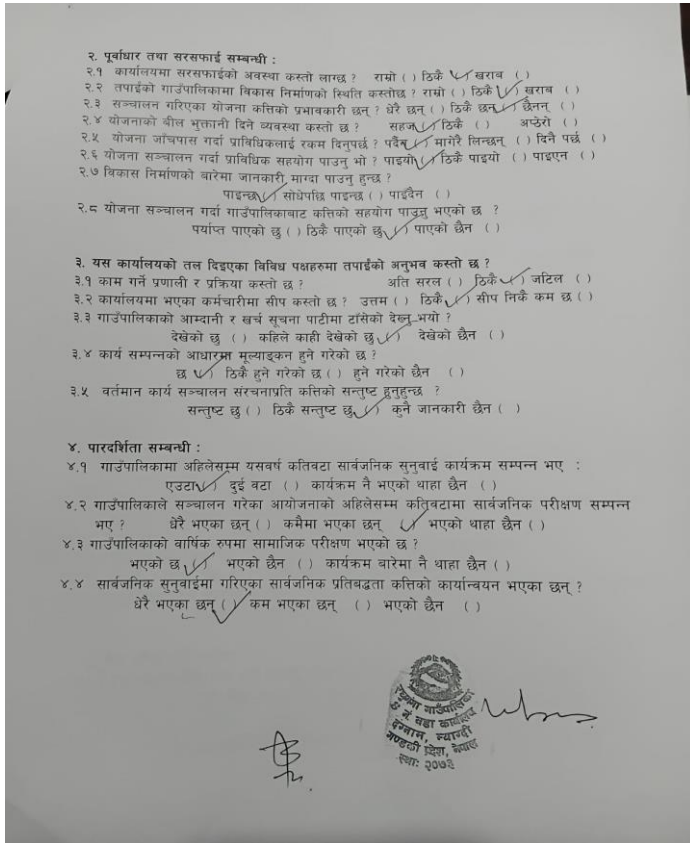 २. पूर्वाधार तथा सरसफाई सम्बन्धी :
२.१ कार्यालयमा सरसफाईको अवस्था कस्तो लाग्छ ? राम्रो ( ) ठिकै (✓) खराब ( )
२.२ तपाईको गाउँपालिकामा विकास निर्माणको स्थिति कस्तोछ ? राम्रो ( ) ठिकै (✓) खराब ( )
२.३ सञ्चालन गरिएका योजना कत्तिको प्रभावकारी छन् ? धेरै छन् ( ) ठिकै छन् (✓) छैनन् ( )
२.४ योजनाको बील भुक्तानी दिने व्यवस्था कस्तो छ ? सहज (✓) ठिकै ( ) अप्ठेरो ( )
२.५ योजना जाँचपास गर्दा प्राविधिकलाई रकम दिनुपर्छ ? पर्दैन (✓) मागेरै लिन्छन् ( ) दिनै पर्छ ( )
२.६ योजना सञ्चालन गर्दा प्राविधिक सहयोग पाउनु भो ? पाइयो (✓) ठिकै पाइयो ( ) पाइएन ( )
२.७ विकास निर्माणको बारेमा जानकारी माग्दा पाउनु हुन्छ ?
पाइन्छ (✓) सोधेपछि पाइन्छ ( ) पाइदैन ( )
२.८ योजना सञ्चालन गर्दा गाउँपालिकाबाट कत्तिको सहयोग पाउनु भएको छ ?
पर्याप्त पाएको छु ( ) ठिकै पाएको छु (✓) पाएको छैन ( )
३. यस कार्यालयको तल दिइएका विविध पक्षहरुमा तपाईंको अनुभव कस्तो छ ?
३.१ काम गर्ने प्रणाली र प्रक्रिया कस्तो छ ? अति सरल ( ) ठिकै (✓) जटिल ( )
३.२ कार्यालयमा भएका कर्मचारीमा सीप कस्तो छ ? उत्तम ( ) ठिकै (✓) सीप निकै कम छ ( )
३.३ गाउँपालिकाको आम्दानी र खर्च सूचना पाटीमा टाँसेको देख्नु भयो ?
देखेको छु ( ) कहिले काही देखेको छु (✓) देखेको छैन ( )
३.४ कार्य सम्पन्नको आधारमा मूल्याङ्कन हुने गरेको छ ?
छ (✓) ठिकै हुने गरेको छ ( ) हुने गरेको छैन ( )
३.५ वर्तमान कार्य सञ्चालन संरचनाप्रति कत्तिको सन्तुष्ट हुनुहुन्छ ?
सन्तुष्ट छु ( ) ठिकै सन्तुष्ट छु (✓) कुनै जानकारी छैन ( )
४. पारदर्शिता सम्बन्धी :
४.१ गाउँपालिकामा अहिलेसम्म यसवर्ष कतिवटा सार्वजनिक सुनुवाई कार्यक्रम सम्पन्न भए :
एउटा (✓) दुई वटा ( ) कार्यक्रम नै भएको थाहा छैन ( )
४.२ गाउँपालिकाले सञ्चालन गरेका आयोजनाको अहिलेसम्म कतिवटामा सार्वजनिक परीक्षण सम्पन्न
भए ? धेरै भएका छन् ( ) कमैमा भएका छन् (✓) भएको थाहा छैन ( )
४.३ गाउँपालिकाको वार्षिक रुपमा सामाजिक परीक्षण भएको छ ?
भएको छ (✓) भएको छैन ( ) कार्यक्रम बारेमा नै थाहा छैन ( )
४.४ सार्वजनिक सुनुवाईमा गरिएका सार्वजनिक प्रतिबद्धता कत्तिको कार्यान्वयन भएका छन् ?
धेरै भएका छन् (✓) कम भएका छन् ( ) भएको छैन ( )
रघुगंगा गाउँपालिका
नं. वडा कार्यालय
दग्नाम, म्याग्दी
गण्डकी प्रदेश, नेपाल
स्था: २०७३